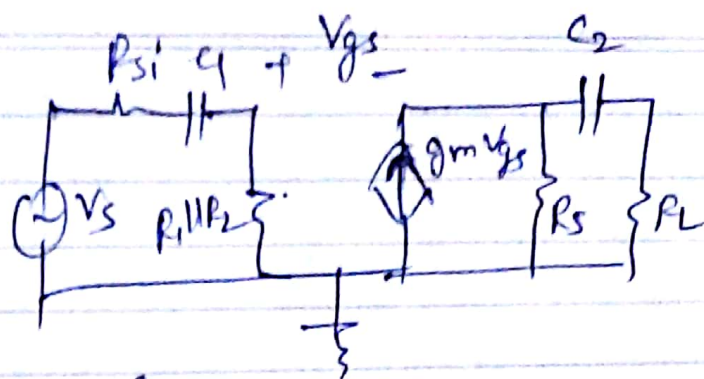 Rsi C1 + Vgs - C2
Vs R1||R2 gmVgs Rs RL